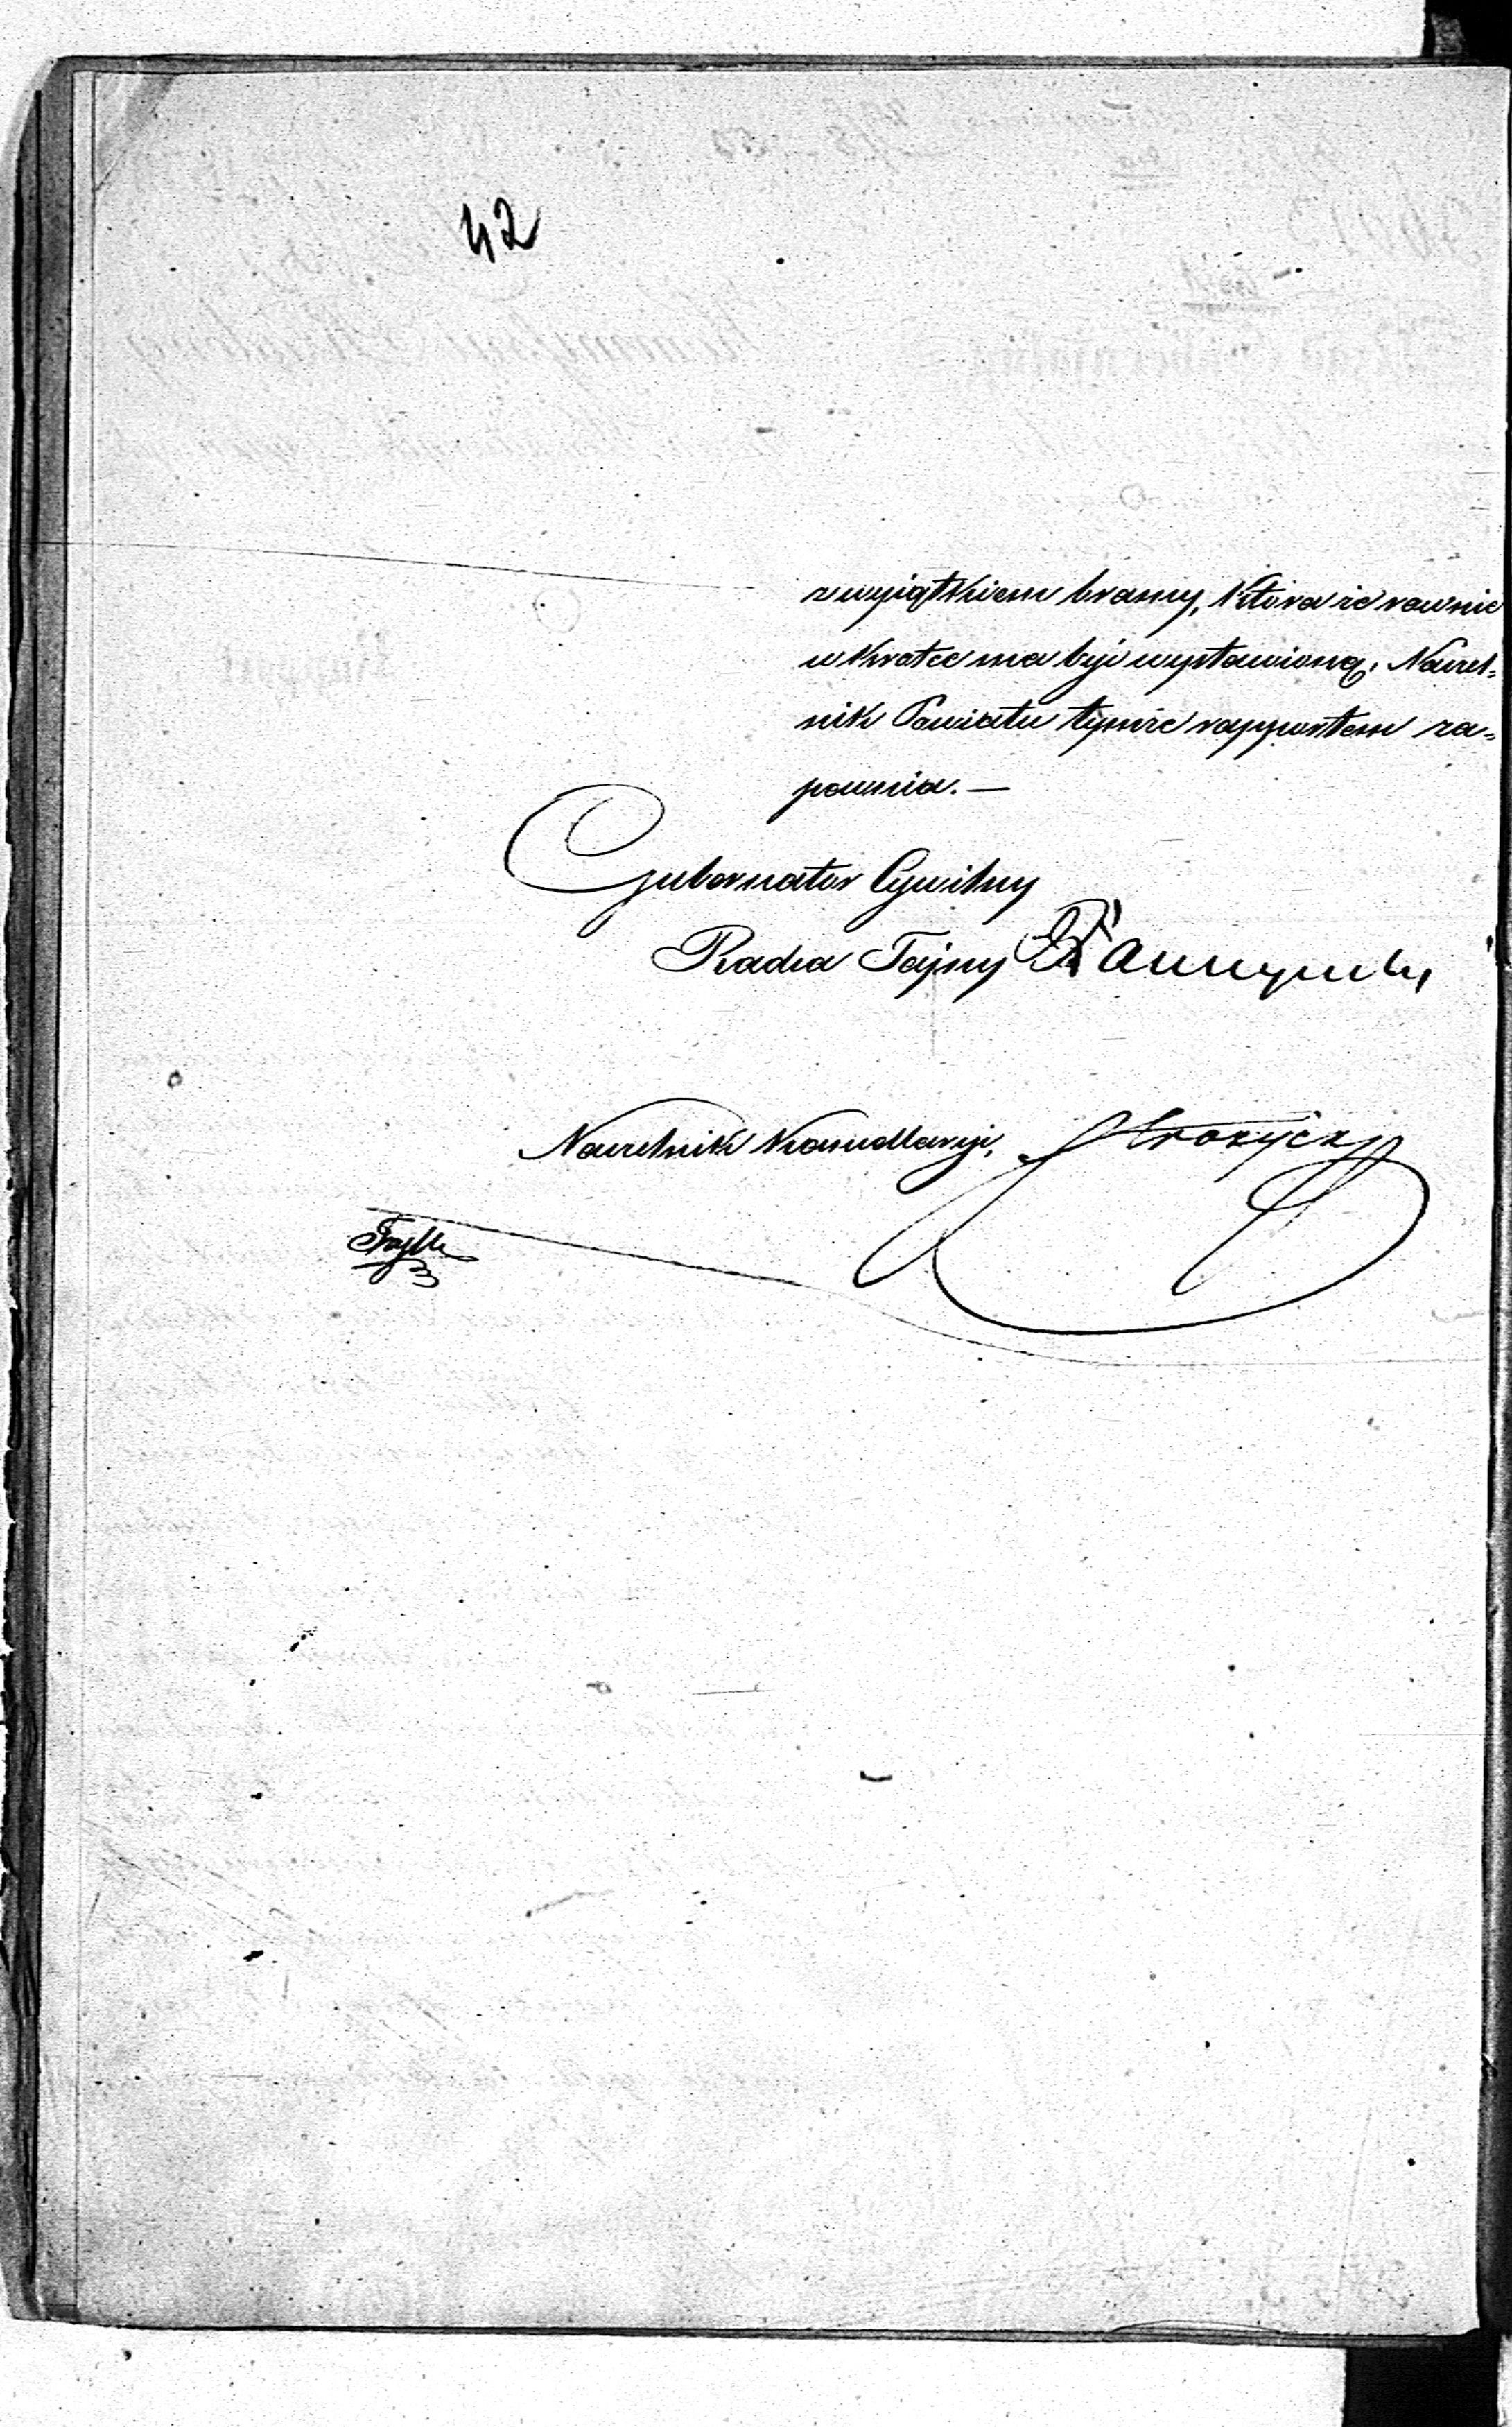 42
z wyiątkiem bramy, która że rownie
w krotce ma być wystawioną, Naczel=
nik Powiatu tymże rapportem za=
pewnia. —
Gubernator Cywilny
Radca Tajny
Naczelnik Kancellaryi,